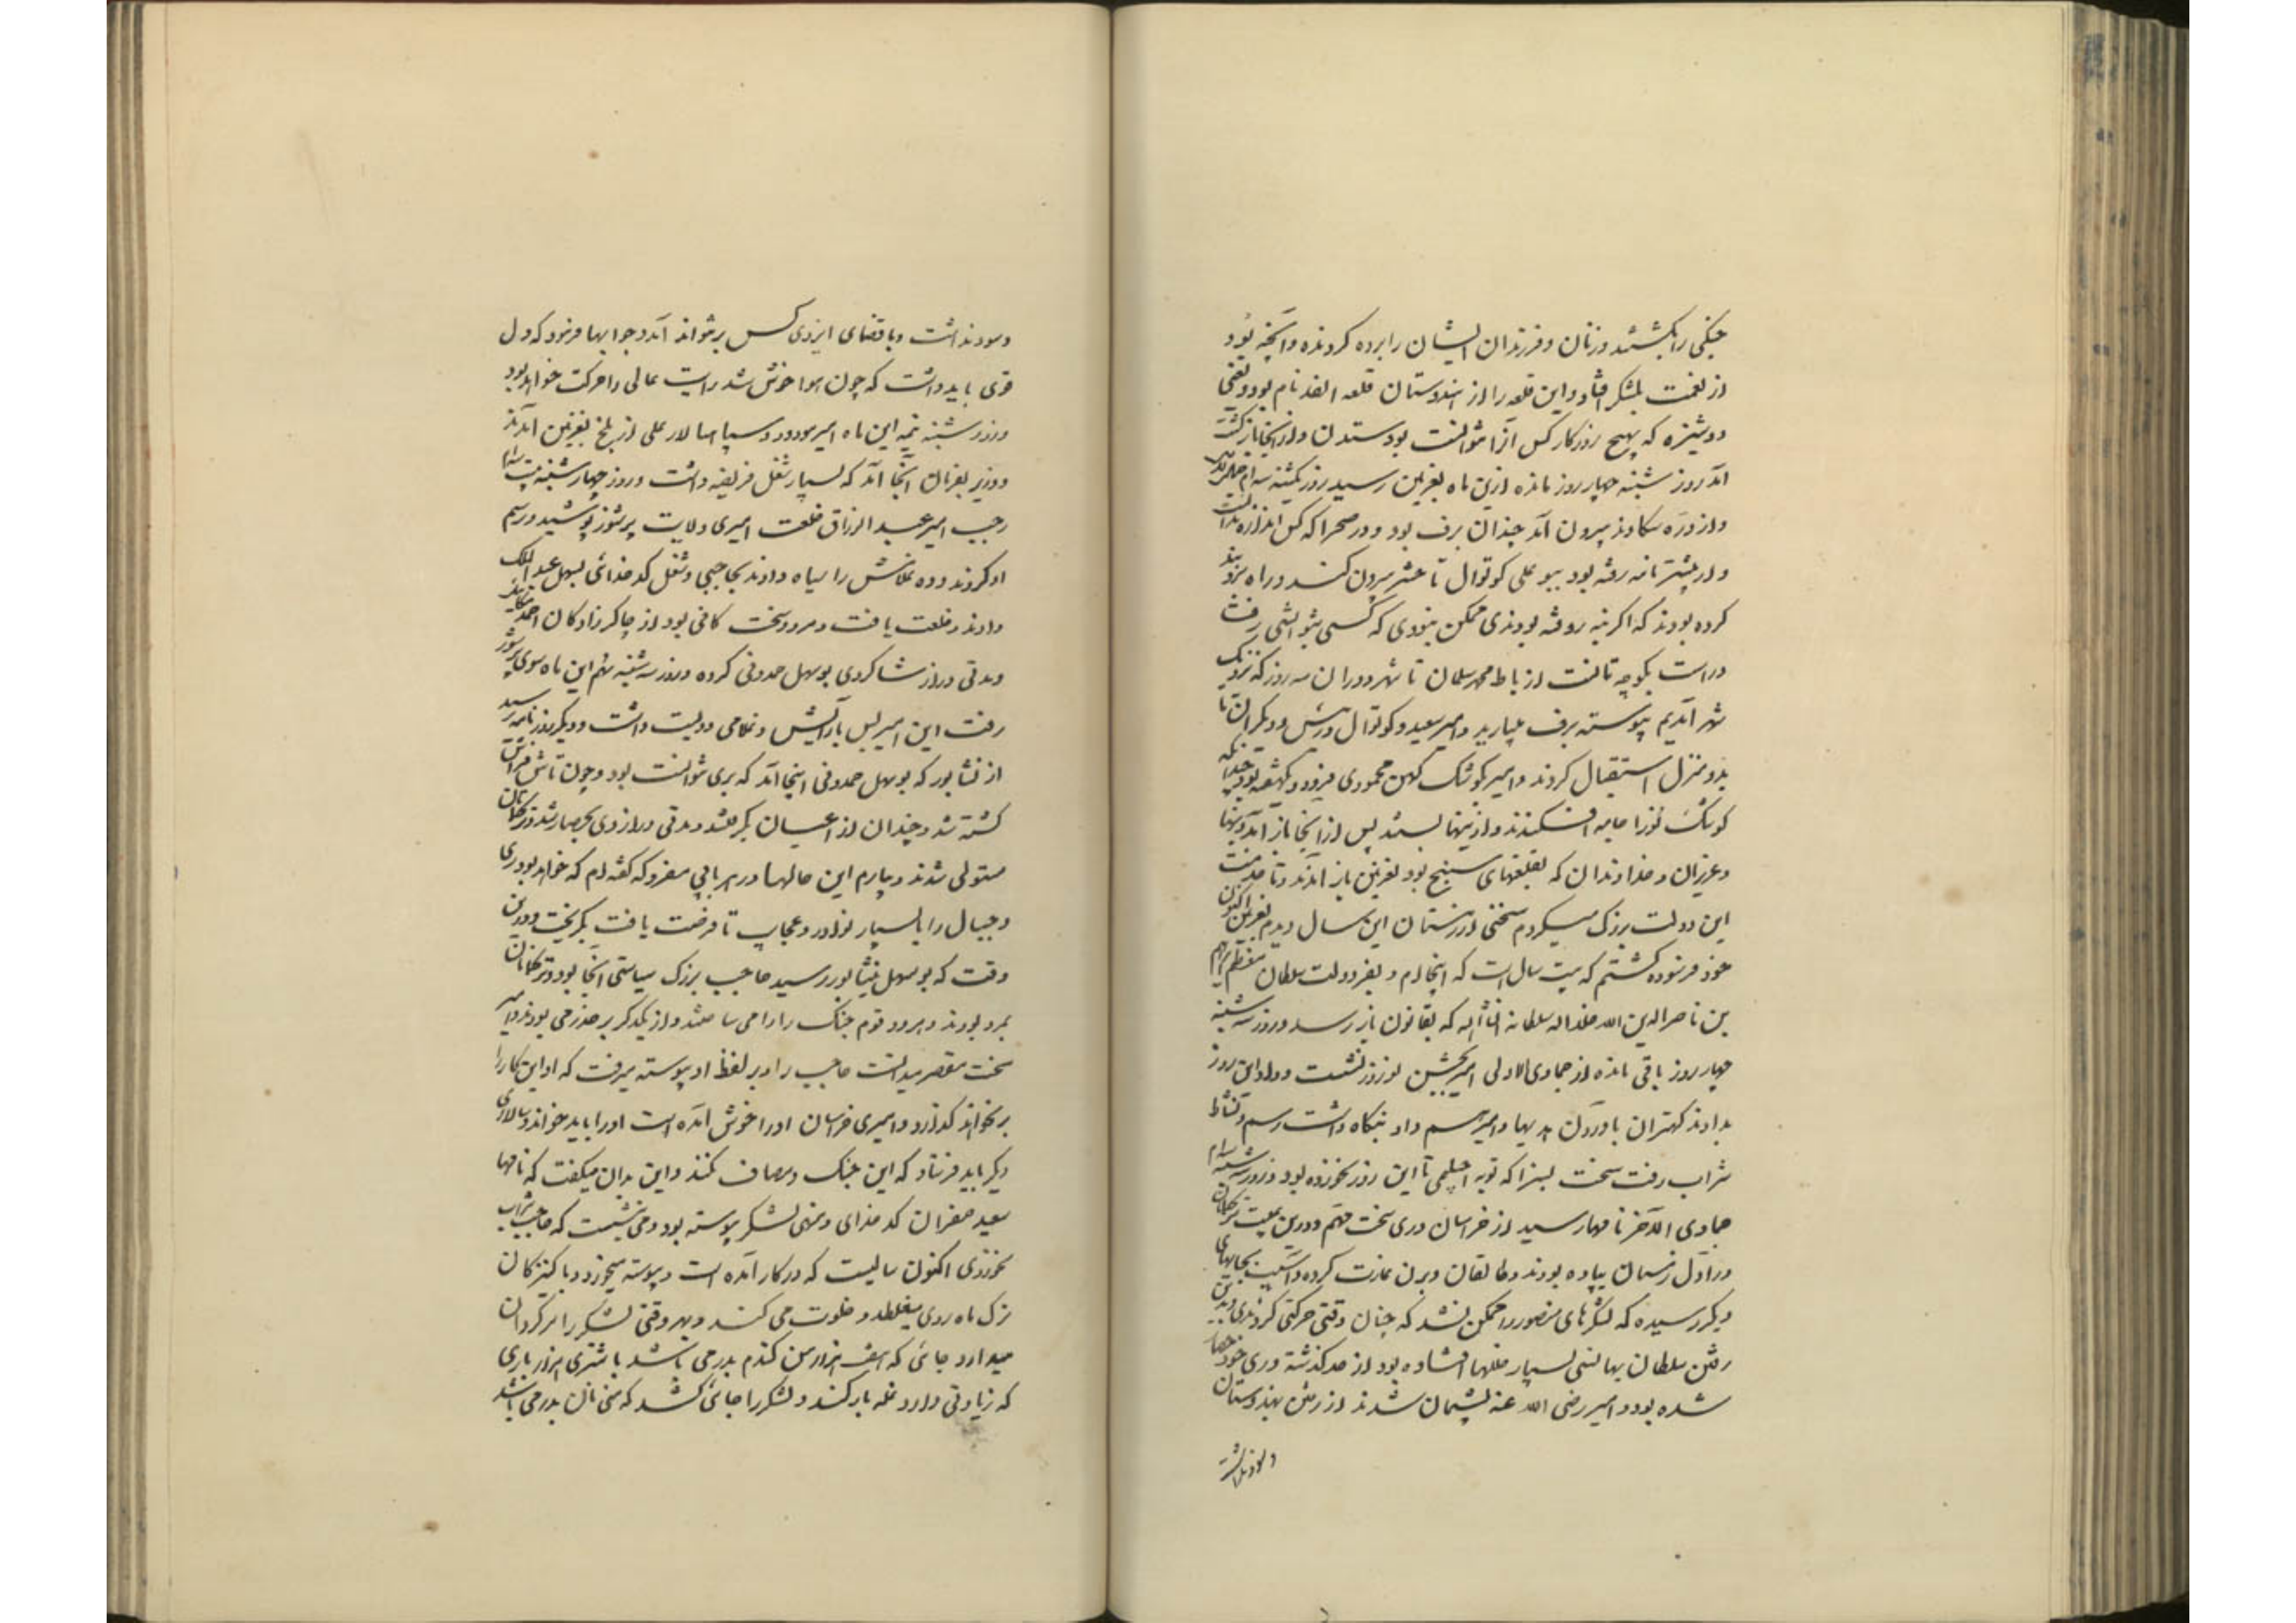 جنگی را بکشتند و زنان و فرزندان ایشان را برده کردند و آنچه بود
از نعمت بلشکر افتاد و این قلعه را از هندوستان قلعه العذر نام بود و یعنی
دوشیزه که بهیچ روزگار کس آنرا نتوانست بود ستدن و از آنجا بازگشت
آمد روز شنبه چهار روز مانده ازین ماه بغزنین رسید روز یکشنبه سیم جمادی
و از دره سکاوند بیرون آمد چندان برف بود و در صحرا که کس اندازه ندانست
و از پیشتر نامه رفته بود ببو علی کوتوال تا حشر بیرون کنند و راه بروبند
کرده بودند که اگر نه روفته بودندی ممکن نبودی که کسی بتوانستی رفت
و راست بکوچه مانست از رباط محمد سلطان تا شهر و دران سه روز که نزدیک
شهر آمدیم پیوسته برف میبارید و امیر سعید و کوتوال و رئیس و دیگران تا
بدو منزل استقبال کردند و امیر کوشک کهن محمودی فرود و یکهفته بود چندانکه
کوشک نو را جامه افکندند و آذینها بستند پس از آنجا باز آمد و بنها
و عزیزان و خداوندان که بقلعتهای سنج بود بغزنین باز آمدند و تا خدمت
این دولت بزرک میکردم سختی زمستان این سال دیدم بغزنین اکنون
خود فرسوده گشتم که بیست سال است که اینجا ام و بفر دولت سلطان معظم ابراهیم
بن ناصر الدین الله خلد اله سلطانه انشاالله که بقانون باز رسد و روز سه شنبه
چهار روز باقی مانده از جمادی الاولی امیر بجشن نوروز نشست و داد این روز
بدادند کهتران باوردن هدیها و امیر هم داد بنگاه داشت رسم و نشاط
شراب رفت سخت بسزا که توبه جیلمی تا این روز نخورده بود و روز سه شنبه سیم
جمادی الآخر نامها رسید از خراسان و ری سخت مهم و درین غیبت ترکمانان
در اول زمستان بیامده بودند و طالقان و برن غارت کرده و آسیب بجایهای
دیگر رسیده که لشکرهای منصور را ممکن نشد که چنان وقتی حرکتی کردندی و بدین
رفتن سلطان بهانسی بسیار خللها افتاده بود از حد گذشته و ری خود حصار
شده بود و امیر رضی الله عنه پشیمان شدند از رفتن بهندوستان
و سود نداشت
و سود نداشت و با قضای ایزدی کس برنتواند آمد و جوابها فرمود که دل
قوی باید داشت که چون هوا خوش شد رایت عالی را حرکت خواهد بود
و روز شنبه نیمه این ماه امیر مودود و سپاهسالار علی از بلخ بغزنین آمدند
و وزیر بفرمان آنجا آمد که بسیار شغل فریضه داشت و روز چهارشنبه بیستم
رجب امیر عبد الرزاق خلعت امیری ولایت پرشور پوشید و رسم
او کردند و ده غلامش را سیاه دادند بحاجبی و شغل کدخدائی بسهل عبد الملک
دادند و خلعت یافت و مرد سخت کافی بود از چاکر زادگان احمد میکائیل
و مدتی دراز شاگردی بوسهل حمدونی کرده و روز سه شنبه نهم این ماه سوی پرشور
رفت این امیر بس بآرایش و غلامی دویست داشت و دیگر روز نامه رسید
از نشابور که بوسهل حمدونی اینجا آمد که بری نتوانست بود و چون تاش فراش
کشته شد و چندان از اعیان بگرفتند و مدتی دراز وی بحصار شد و ترکمانان
مستولی شدند و بیارم این حالها در هر بابی مفرد که گفته ام که خواهد بود ری
و جبال را با بسیار نوادر و عجایب تا فرصت یافت بگریخت و درین
وقت که بوسهل بنشابور رسید حاجب بزرک سیاشی آنجا بود و ترکمانان
بمرو بودند و هر دو قوم جنک را رامی ساختند و از یکدیگر بر حذر می بودند و امیر
سخت مقصر میدانست حاجب را و بر لفظ او پیوسته میرفت که او این کار را
برنخواهد گذارد و امیری خراسان او را خوش آمده است او را باید خواند و سالاری
دیگر باید فرستاد که این جنک و مصاف کند و این بدان میگفت که نامها
سعید صعران کدخدای و منهی لشکر پیوسته بود و می نبشت که حاجب شراب
نخوردی اکنون سالیست که در کار آمده است و پیوسته میخورد و با کنیزکان
ترک ماه روی میغلطد و خلوت می کند و بهر وقتی لشکر را سرگردان
میدارد جائی که هفت هزار من گندم بدرمی باشد با شتری هزار باری
که زیادتی دارد غله بار کند و لشکر را جائی کشد که من نان بدرمی باشد